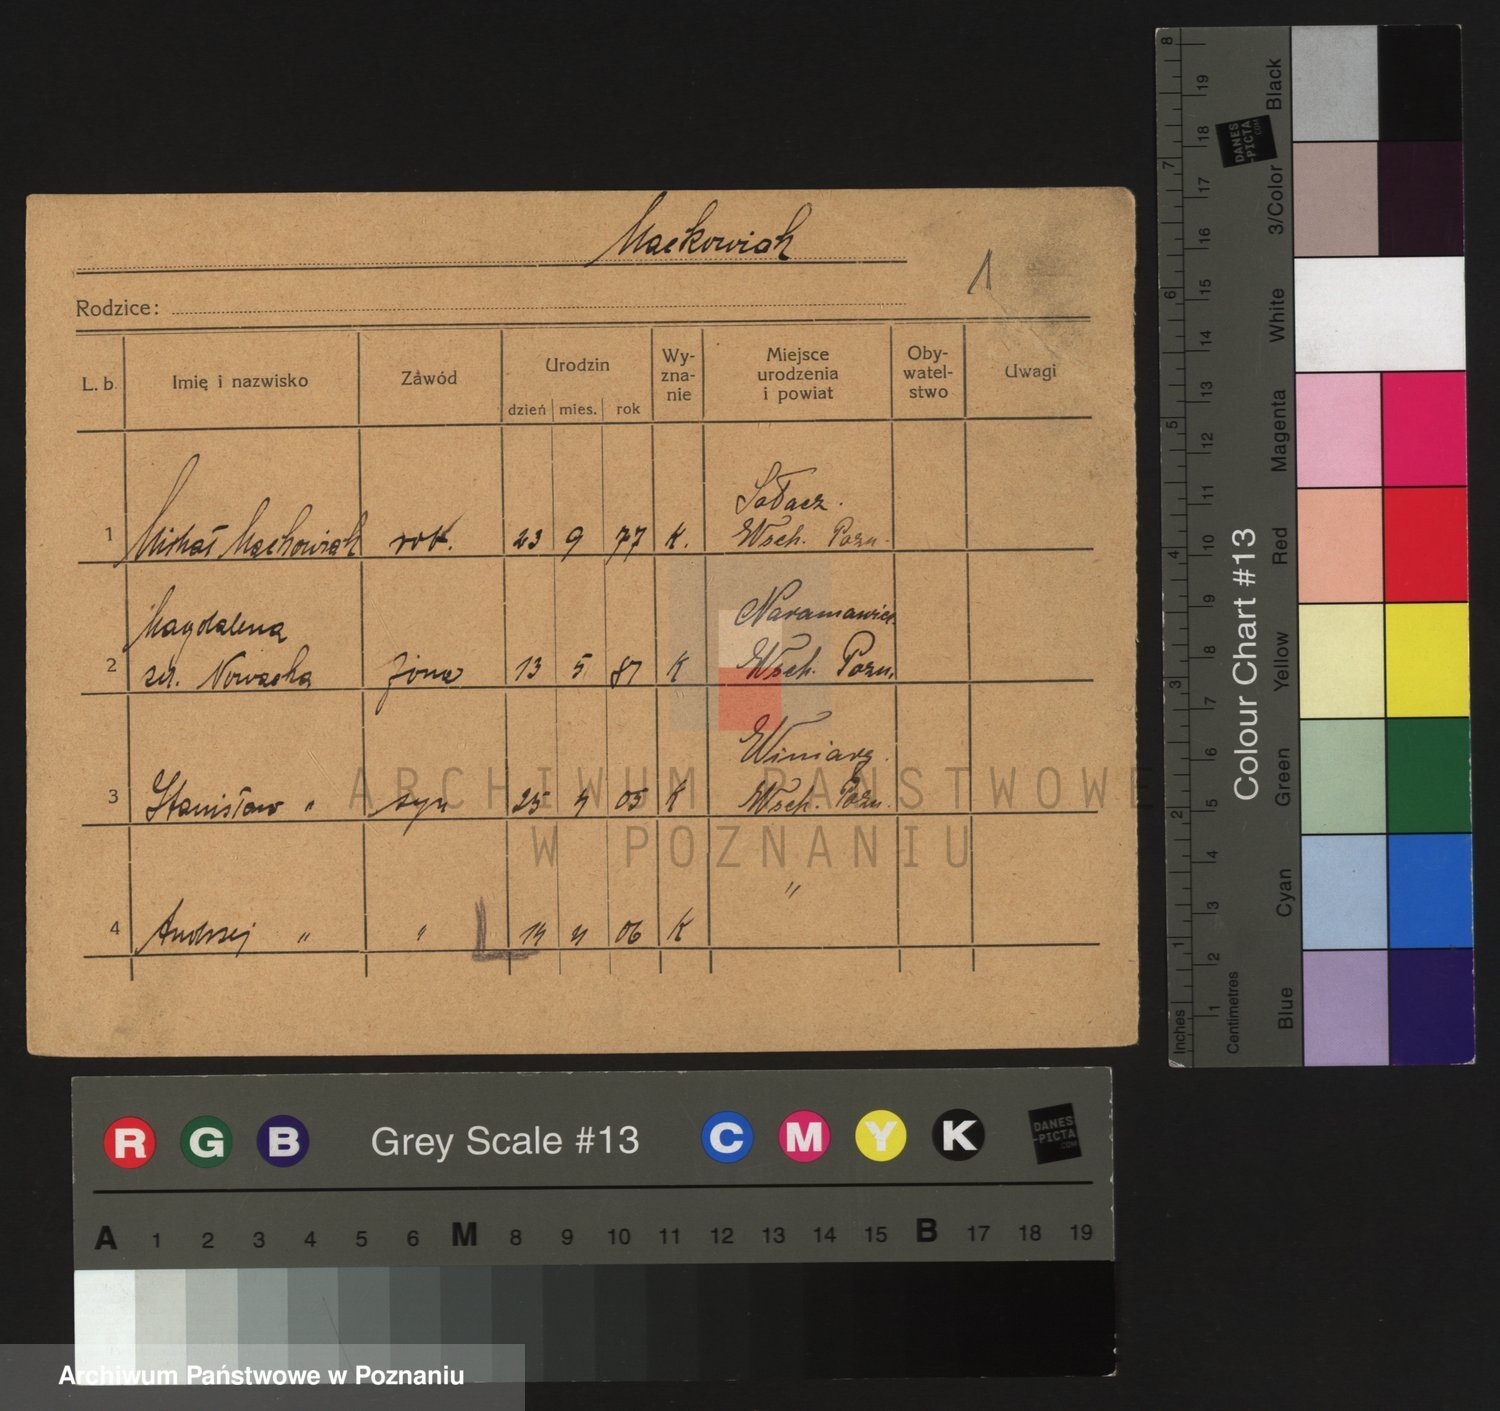 Maćkowiak
1
Rodzice:
L. b. Imię i nazwisko Zawód Urodzin dzień mies. rok Wy-zna-nie Miejsce urodzenia i powiat Oby-watel-stwo Uwagi
Sołacz.
1 Michał Maćkowiak rob. 23 9 77 K. Wsch. Pozn.
Magdalena Naramowice
2 zd. Nowacka żona 13 5 87 K Wsch. Pozn.
Winiary
3 Stanisław " syn 25 4 05 K Wsch. Pozn.
"
4 Andrzej " " 06 K
ARCHIWUM PAŃSTWOWE
W POZNANIU
R G B Grey Scale #13 C M Y K DANES-PICTA.COM
A 1 2 3 4 5 6 M 8 9 10 11 12 13 14 15 B 17 18 19
Archiwum Państwowe w Poznaniu
Colour Chart #13
Blue Cyan Green Yellow Red Magenta White 3/Color Black
DANES-PICTA.COM
Inches 1 2 3 4 5 6 7 8
Centimetres 1 2 3 4 5 6 7 8 9 10 11 12 13 14 15 16 17 18 19